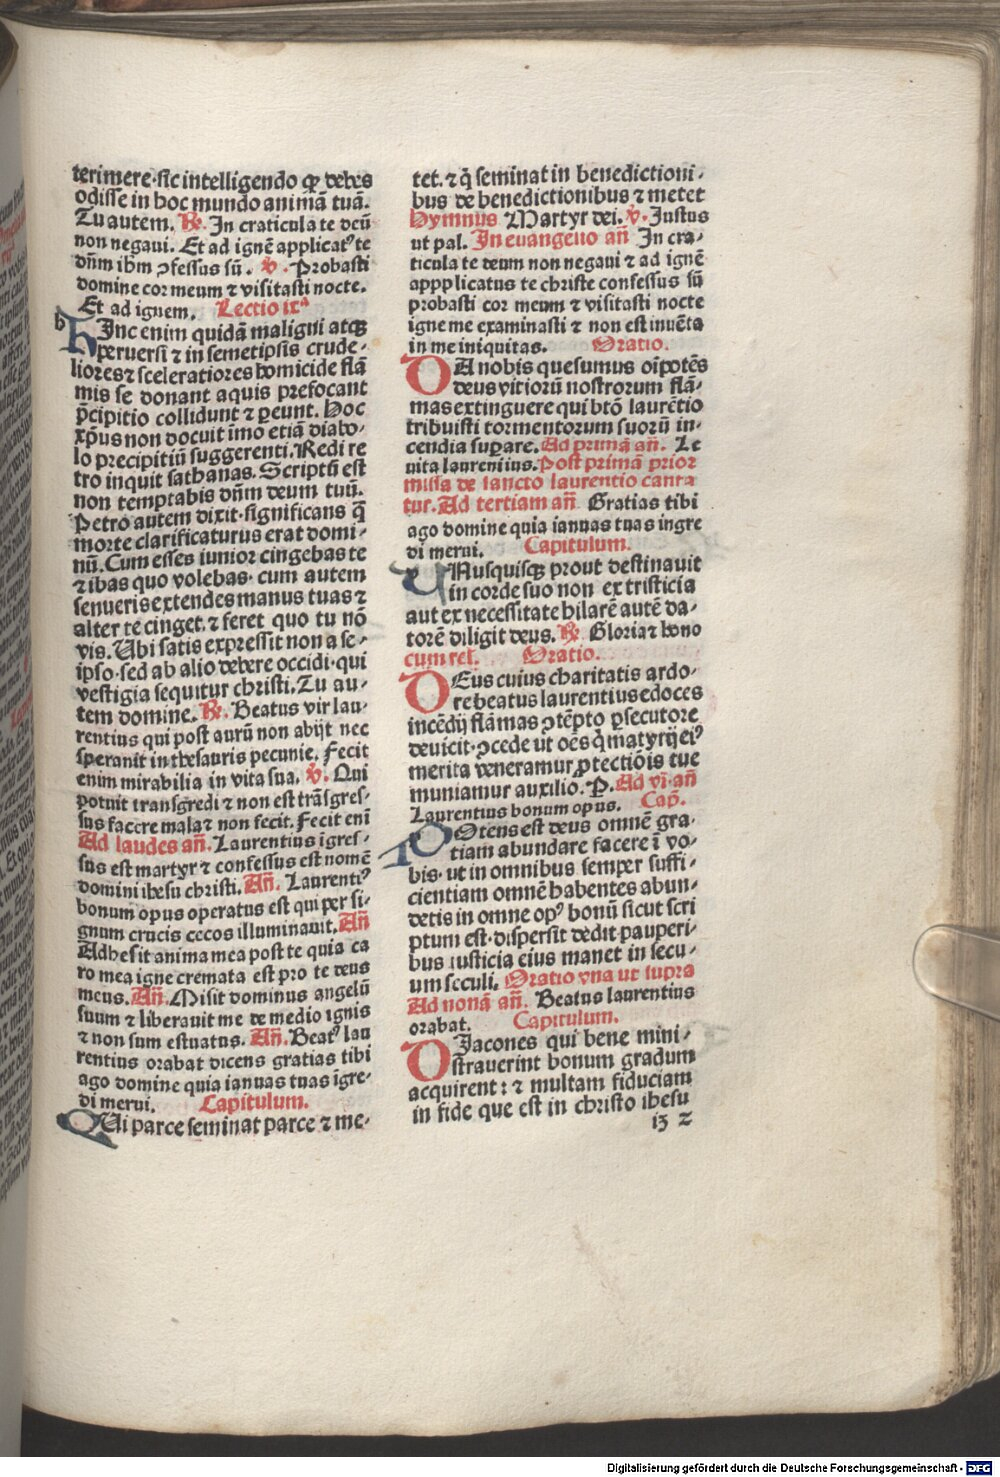 terimere·sic intelligendo qꝛ debes
odisse in hoc mundo animā tuā.
Tu autem. R̃. In craticula te deū
non negaui. Et ad ignē applicatꝰ te
dñm ihm ↄfessus sū. v̓. Probasti
domine cor meum ⁊ visitasti nocte.
Et ad ignem. Lectio ixᵃ
h HInc enim quidā maligni atqꝫ
peruersi ⁊ in semetipsis crude-
liores ⁊ sceleratiores homicide flā
mis se donant aquis prefocant
p̄cipitio collidunt ⁊ ꝑeunt. Hoc
xp̄us non docuit īmo etiā diabo-
lo precipitiū suggerenti. Redi re
tro inquit sathanas. Scriptū est
non temptabis dñm deum tuū.
Petro autem dixit·significans q̄
morte clarificaturus erat domi-
nū. Cum esses iunior cingebas te
⁊ ibas quo volebas· cum autem
senueris extendes manus tuas ⁊
alter te cinget. ⁊ feret quo tu nō
vis. Ubi satis expressit non a se-
ipso·sed ab alio debere occidi·qui
vestigia sequitur christi. Tu au-
tem domine. R̃. Beatus vir lau-
rentius qui post aurū non abijt nec
speranit in thesauris pecunie. Fecit
enim mirabilia in vita sua. v̓. Qui
potuit transgredi ⁊ non est trāsgres-
sus facere mala ⁊ non fecit. Fecit eni
Ad laudes añ. Laurentius īgres-
sus est martyr ⁊ confessus est nomē
domini ihesu christi. Añ. Laurentiꝰ
bonum opus operatus est qui per si-
gnum crucis cecos illuminauit. Añ
Adhesit anima mea post te quia ca
ro mea igne cremata est pro te deus
meus. Añ. Misit dominus angelū
suum ⁊ liberauit me de medio ignis
⁊ non sum estuatus. Añ. Beatꝰ lau
rentius orabat dicens gratias tibi
ago domine quia ianuas tuas īgre-
di merui. Capitulum.
QUi parce seminat parce ⁊ me-
tet. ⁊ q̄ seminat in benedictioni-
bus de benedictionibus ⁊ metet
Hymnus Martyr dei. v̓. Justus
ut pal. In euangelio añ In cra-
ticula te deum non negaui ⁊ ad ignē
appplicatus te christe confessus sū
probasti cor meum ⁊ visitasti nocte
igne me examinasti ⁊ non est inuēta
in me iniquitas. Oratio.
DA nobis quesumus oīpotēs
deus vitiorū nostrorum flā-
mas extinguere qui btō laurētio
tribuisti tormentorum suorū in-
cendia suꝑare. Ad primā añ. Le
uita laurentius. Post primā prior
missa de sancto laurentio canta
tur. Ad tertiam añ Gratias tibi
ago domine quia ianuas tuas ingre
di merui. Capitulum.
UNusquisqꝫ prout destinauit
in corde suo non ex tristicia
aut ex necessitate hilarē autē da-
torē diligit deus. R̃. Gloria ⁊ hono
cum rel. Oratio.
DEus cuius charitatis ardo-
re beatus laurentius edoces
incēdij flāmas ↄtēpto ꝑsecutore
deuicit·ↄcede ut oēs q̄ matyrij eiꝰ
merita veneramur ꝓtectiōis tue
muniamur auxilio. P. Ad vi· añ
Laurentius bonum opus. Cap̄.
POtens est deus omnē gra-
tiam abundare facere ī vo-
bis· ut in omnibus semper suffi-
cientiam omnē habentes abun-
detis in omne opꝰ bonū sicut scri
ptum est·dispersit dedit pauperi-
bus iusticia eius manet in secu-
um seculi. Oratio vna ut supra
Ad nonā añ. Beatus laurentius
orabat. Capitulum.
DIacones qui bene mini-
strauerint bonum gradum
acquirent: ⁊ multam fiduciam
in fide que est in christo ihesu
13 2
Digitalisierung gefördert durch die Deutsche Forschungsgemeinschaft - DFG